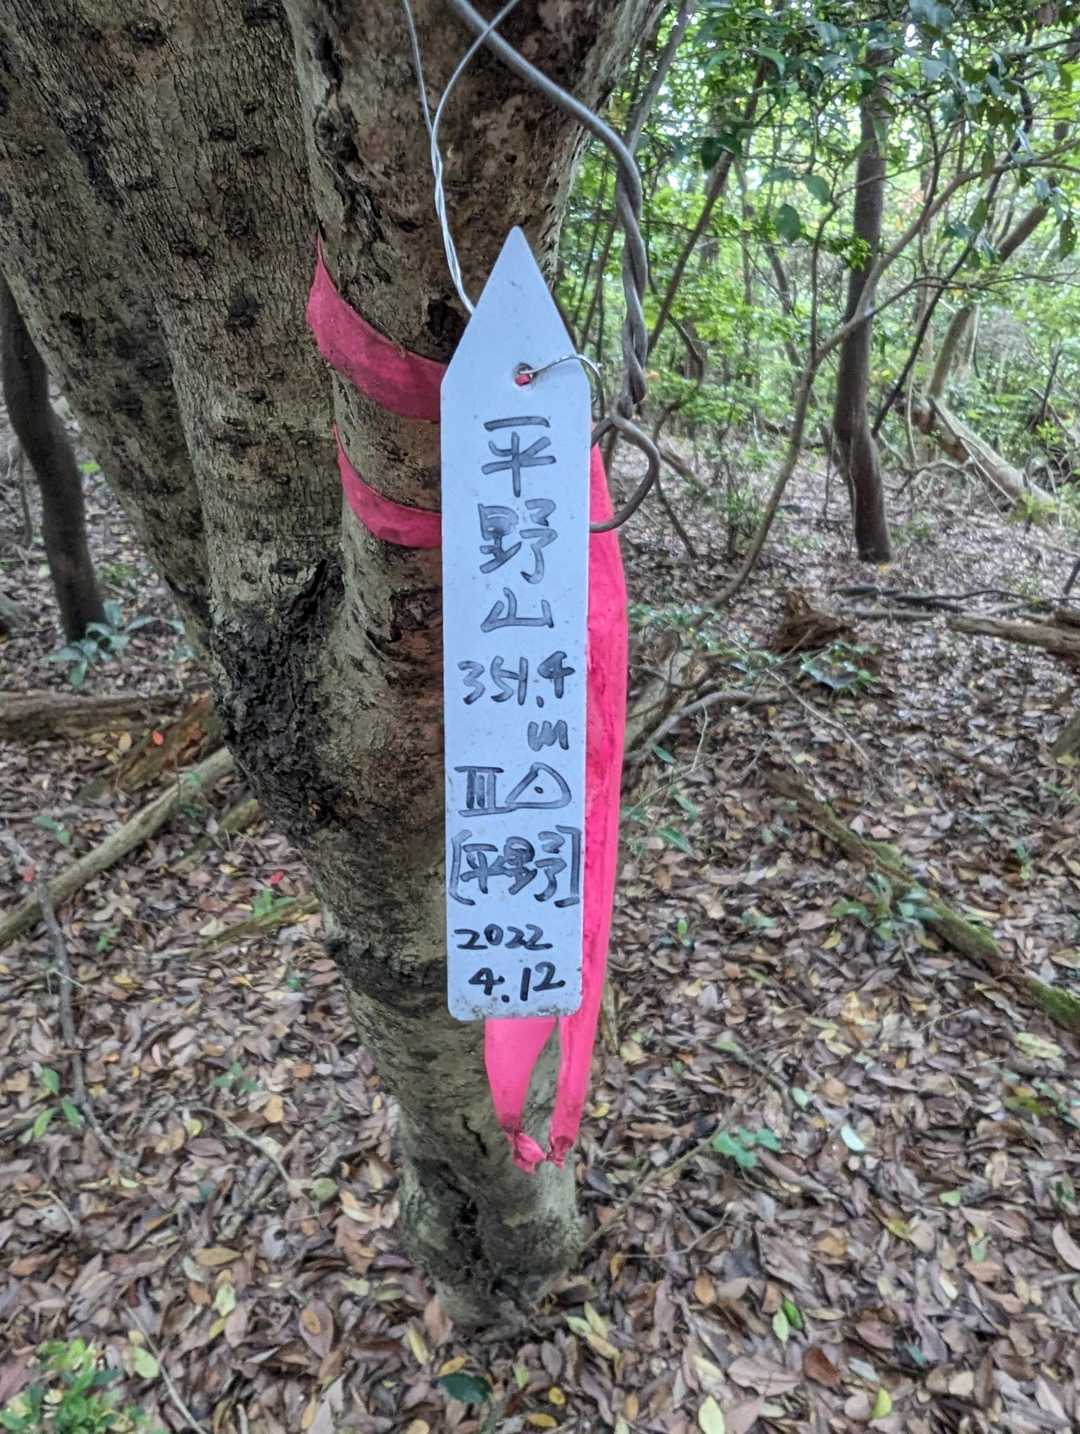 平野山
351.4
m
III△
[平野]
2022
4.12